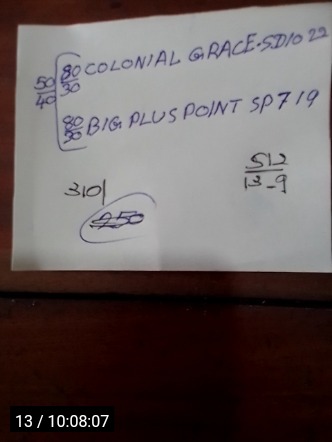 50/40
80/30 COLONIAL GRACE-SD1022
80/30 BIG PLUS POINT SP719
512
13-9
310/
250
13 / 10:08:07